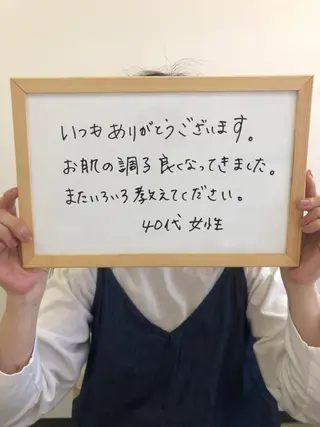 いつもありがとうございます。
お肌の調る良くなってきました。
またいろいろ教えてください。
40代 女性